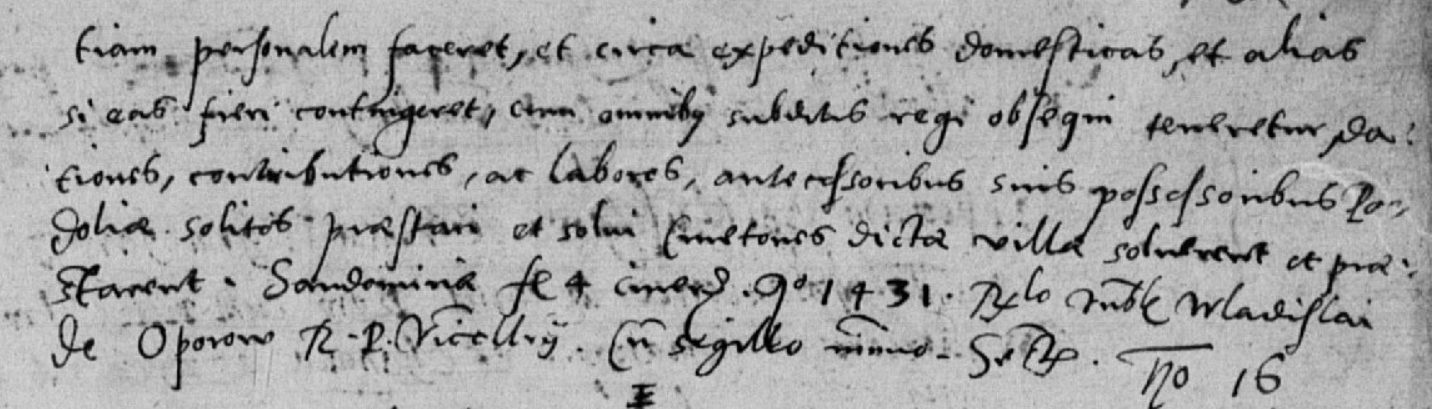 tiam personalem faceret, et circa expeditiones domesticas, et alias
si eas fieri contingeret, cum omnibus subditis regi obsequi teneretur, da-
tiones, contributiones, ac labores, antecessoribus suis possessoribus Po-
doliæ solitos præstari et solui Cmetones dictæ villæ soluerent et præ-
starent. Sandomiriæ fe 4 cinerum. Ao 1431. Relo Wladislai
de Oporow R. P. Vicellrij. Cum sigillo minno. No 16